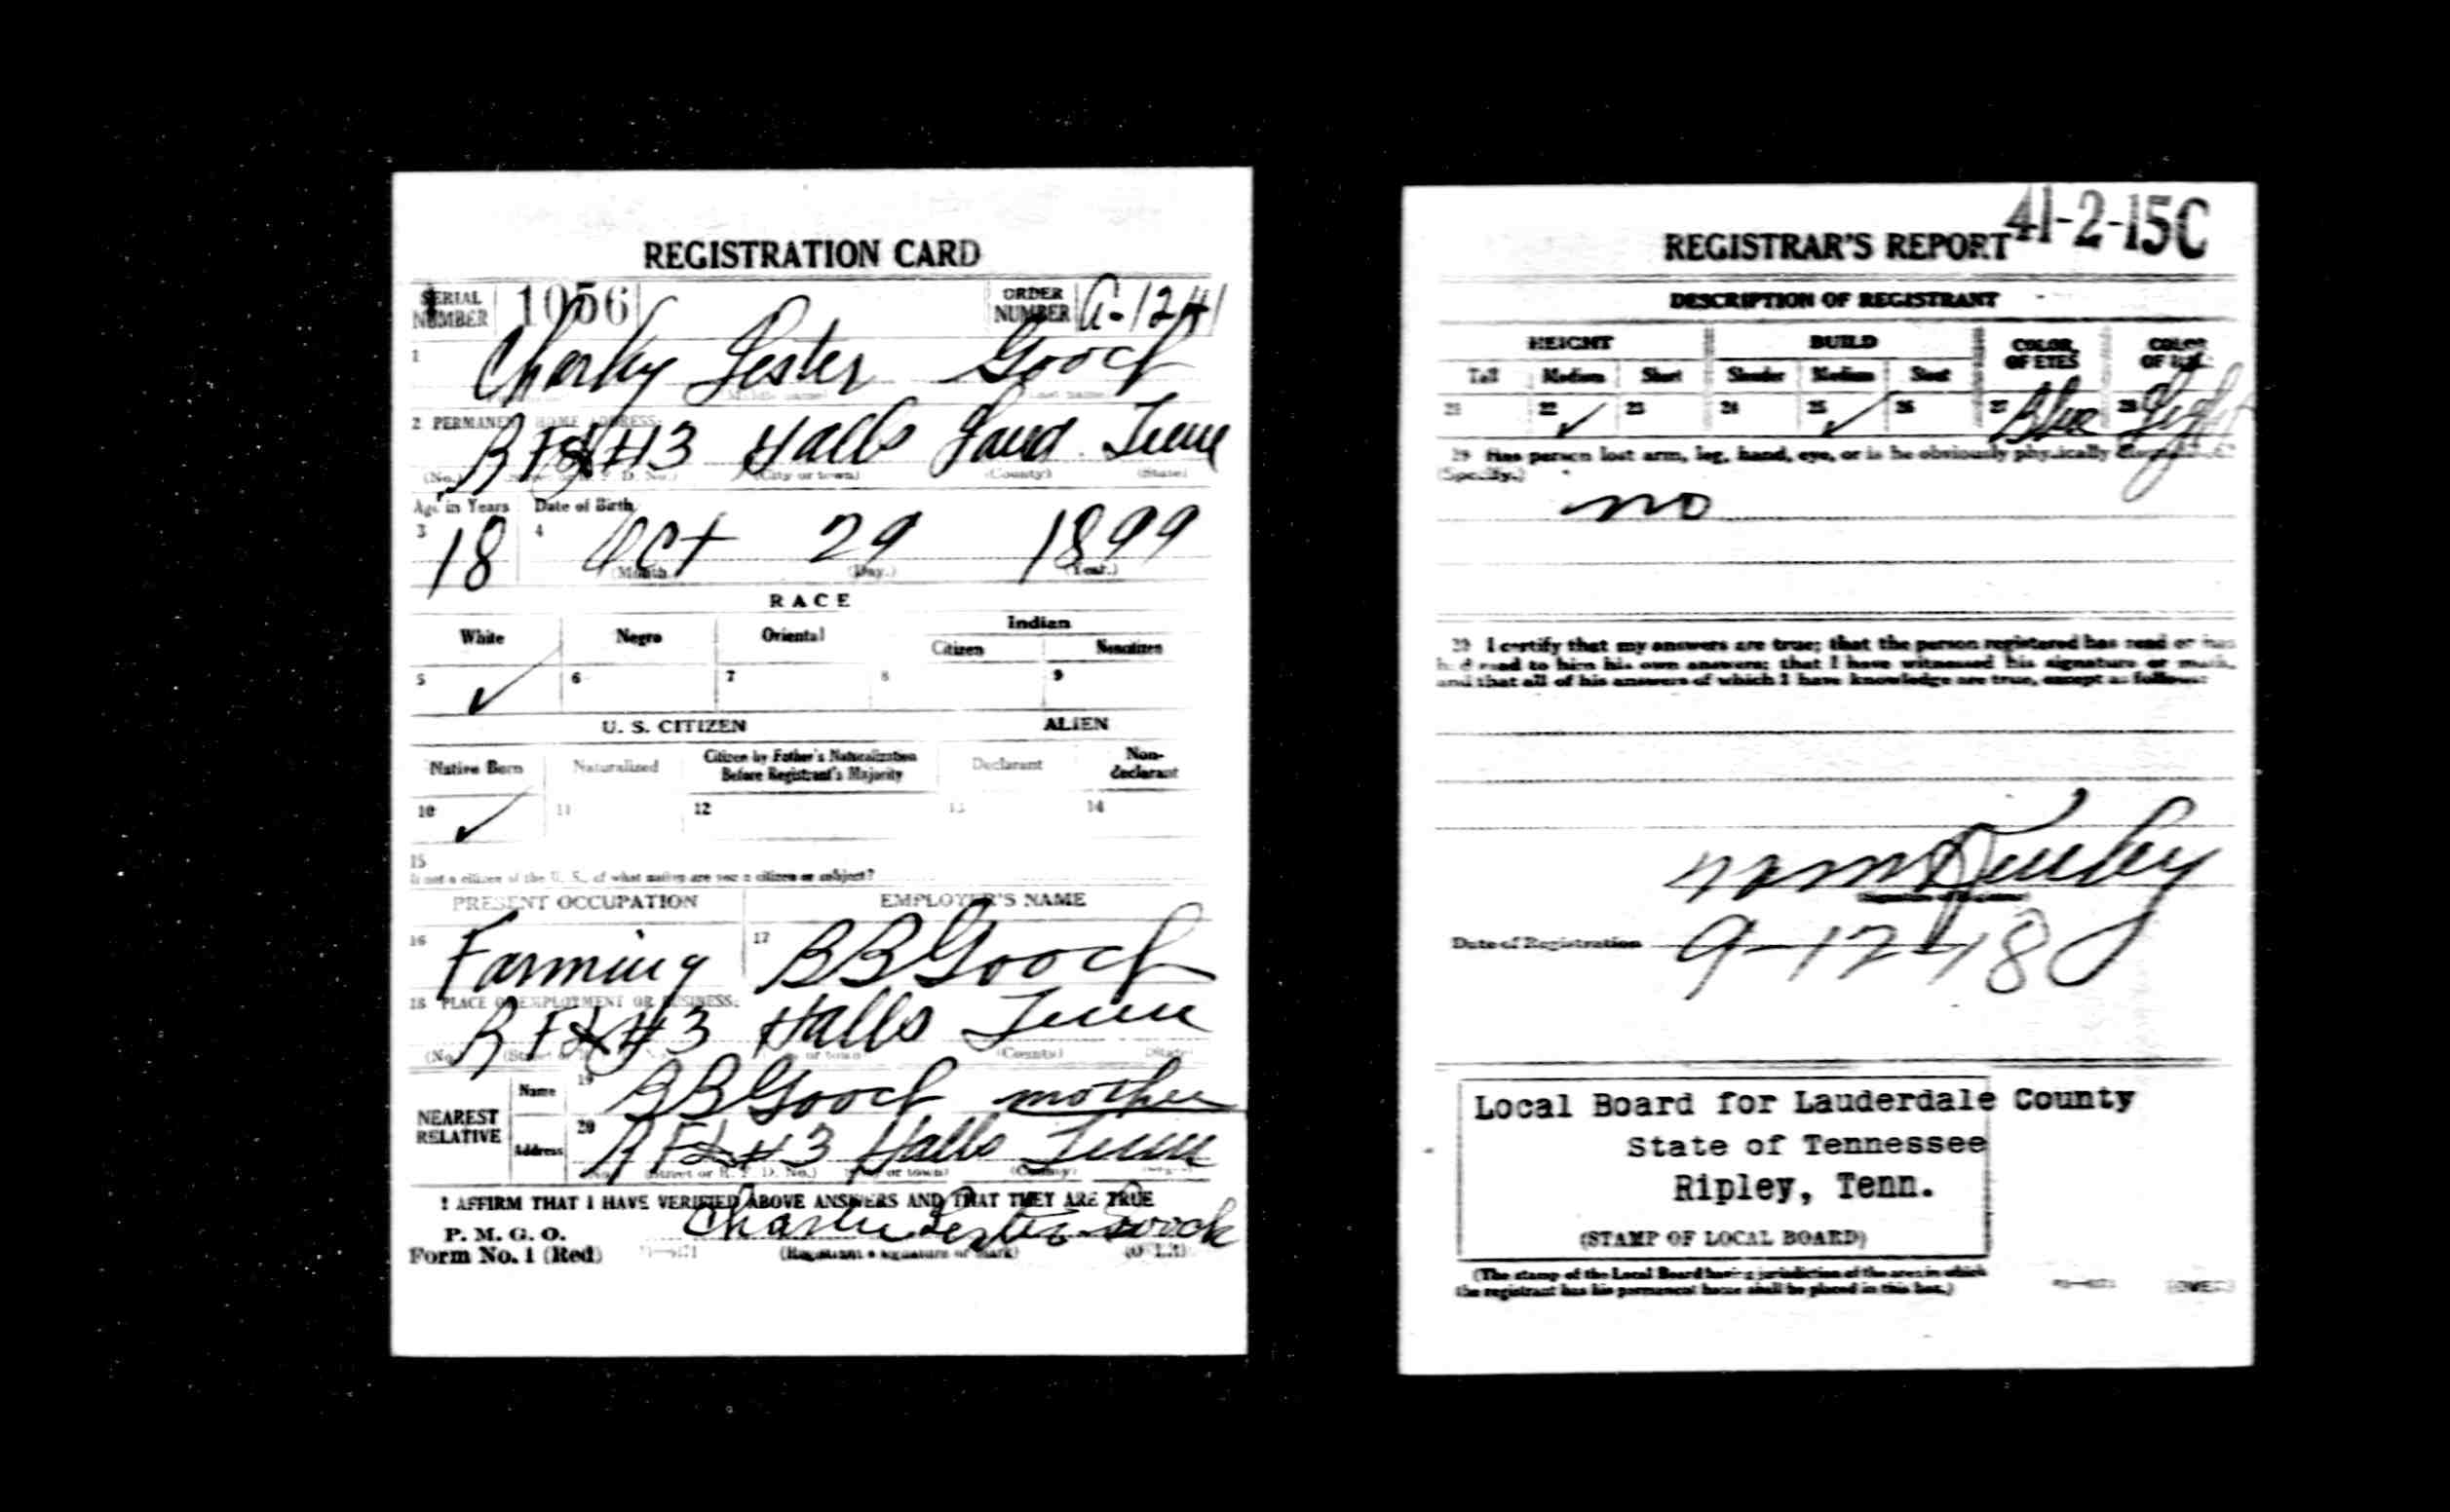 REGISTRATION CARD
SERIAL NUMBER 1056 ORDER NUMBER A-1241
1 Charley Lester Gooch
2 PERMANENT HOME ADDRESS:
R F D #3 Halls Laud Tenn
(No.) (Street or R. F. D. No.) (City or town) (County) (State)
Age in Years Date of Birth
3 18 4 Oct 29 1899
(Month.) (Day.) (Year.)
RACE
White Negro Oriental Indian
Citizen Noncitizen
5 ✓ 6 7 8 9
U. S. CITIZEN ALIEN
Native Born Naturalized Citizen by Father's Naturalization Before Registrant's Majority Declarant Non-declarant
10 ✓ 11 12 13 14
15
If not a citizen of the U. S., of what nation are you a citizen or subject?
PRESENT OCCUPATION EMPLOYER'S NAME
16 Farming 17 B B Gooch
18 PLACE OF EMPLOYMENT OR BUSINESS:
R F D #3 Halls Tenn
(No.) (Street or (City or town) (County) (State)
NEAREST RELATIVE Name 19 B B Gooch mother
Address 20 R F D #3 Halls Tenn
(No.) (Street or R. F. D. No.) (City or town) (County) (State)
I AFFIRM THAT I HAVE VERIFIED ABOVE ANSWERS AND THAT THEY ARE TRUE
P. M. G. O.
Form No. 1 (Red) Charlie Lester Gooch
(Registrant's signature or mark) (OVER)
41-2-15C
REGISTRAR'S REPORT
DESCRIPTION OF REGISTRANT
HEIGHT BUILD COLOR OF EYES COLOR OF HAIR
Tall Medium Short Slender Medium Stout
21 22 ✓ 23 24 25 ✓ 26 27 Blue 28 Light
29 Has person lost arm, leg, hand, eye, or is he obviously physically disqualified?
(Specify.)
no
30 I certify that my answers are true; that the person registered has read or has
had read to him his own answers; that I have witnessed his signature or mark,
and that all of his answers of which I have knowledge are true, except as follows:
(Signature of Registrar)
Date of Registration 9-12-18
Local Board for Lauderdale County
State of Tennessee
Ripley, Tenn.
(STAMP OF LOCAL BOARD)
(The stamp of the Local Board having jurisdiction of the area in which
the registrant has his permanent home shall be placed in this box.)
(OVER)